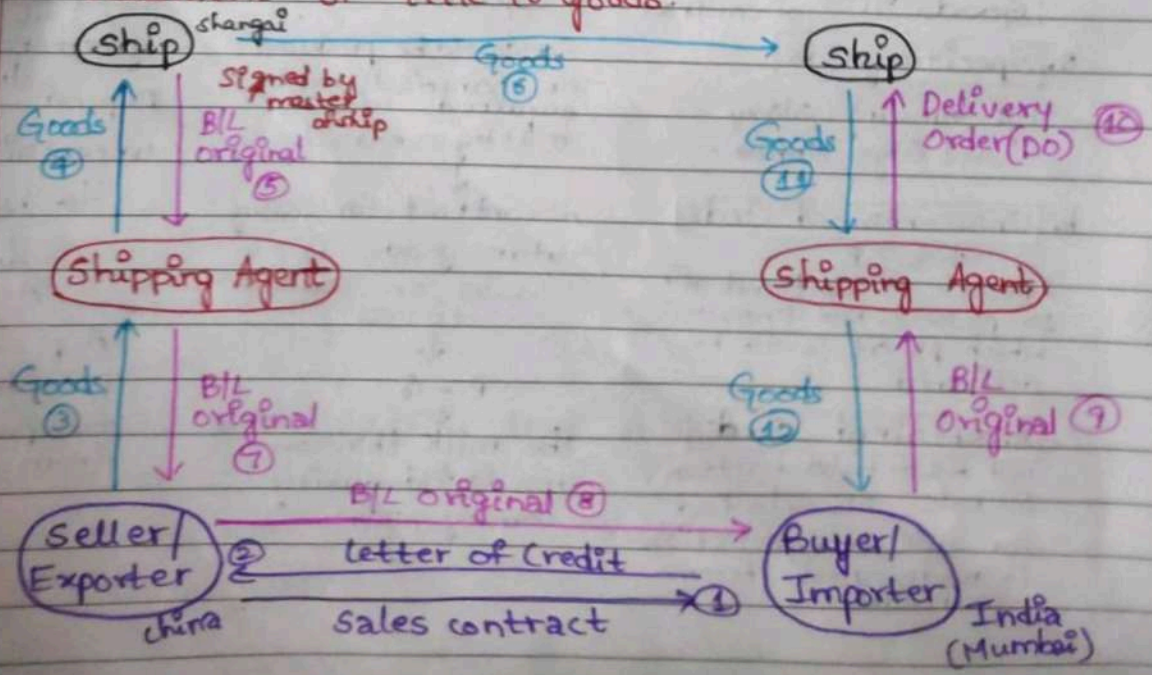 title to goods.
Ship
shangai
Goods
⑥
Ship
Signed by
master
of ship
Goods
④
B/L
original
⑤
Goods
⑪
Delivery
Order(DO)
Shipping Agent
Shipping Agent
Goods
③
B/L
original
⑦
Goods
⑫
B/L
original ⑨
B/L original ⑧
Seller/
Exporter
② Letter of Credit
Sales contract ①
Buyer/
Importer
china
India
(Mumbai)